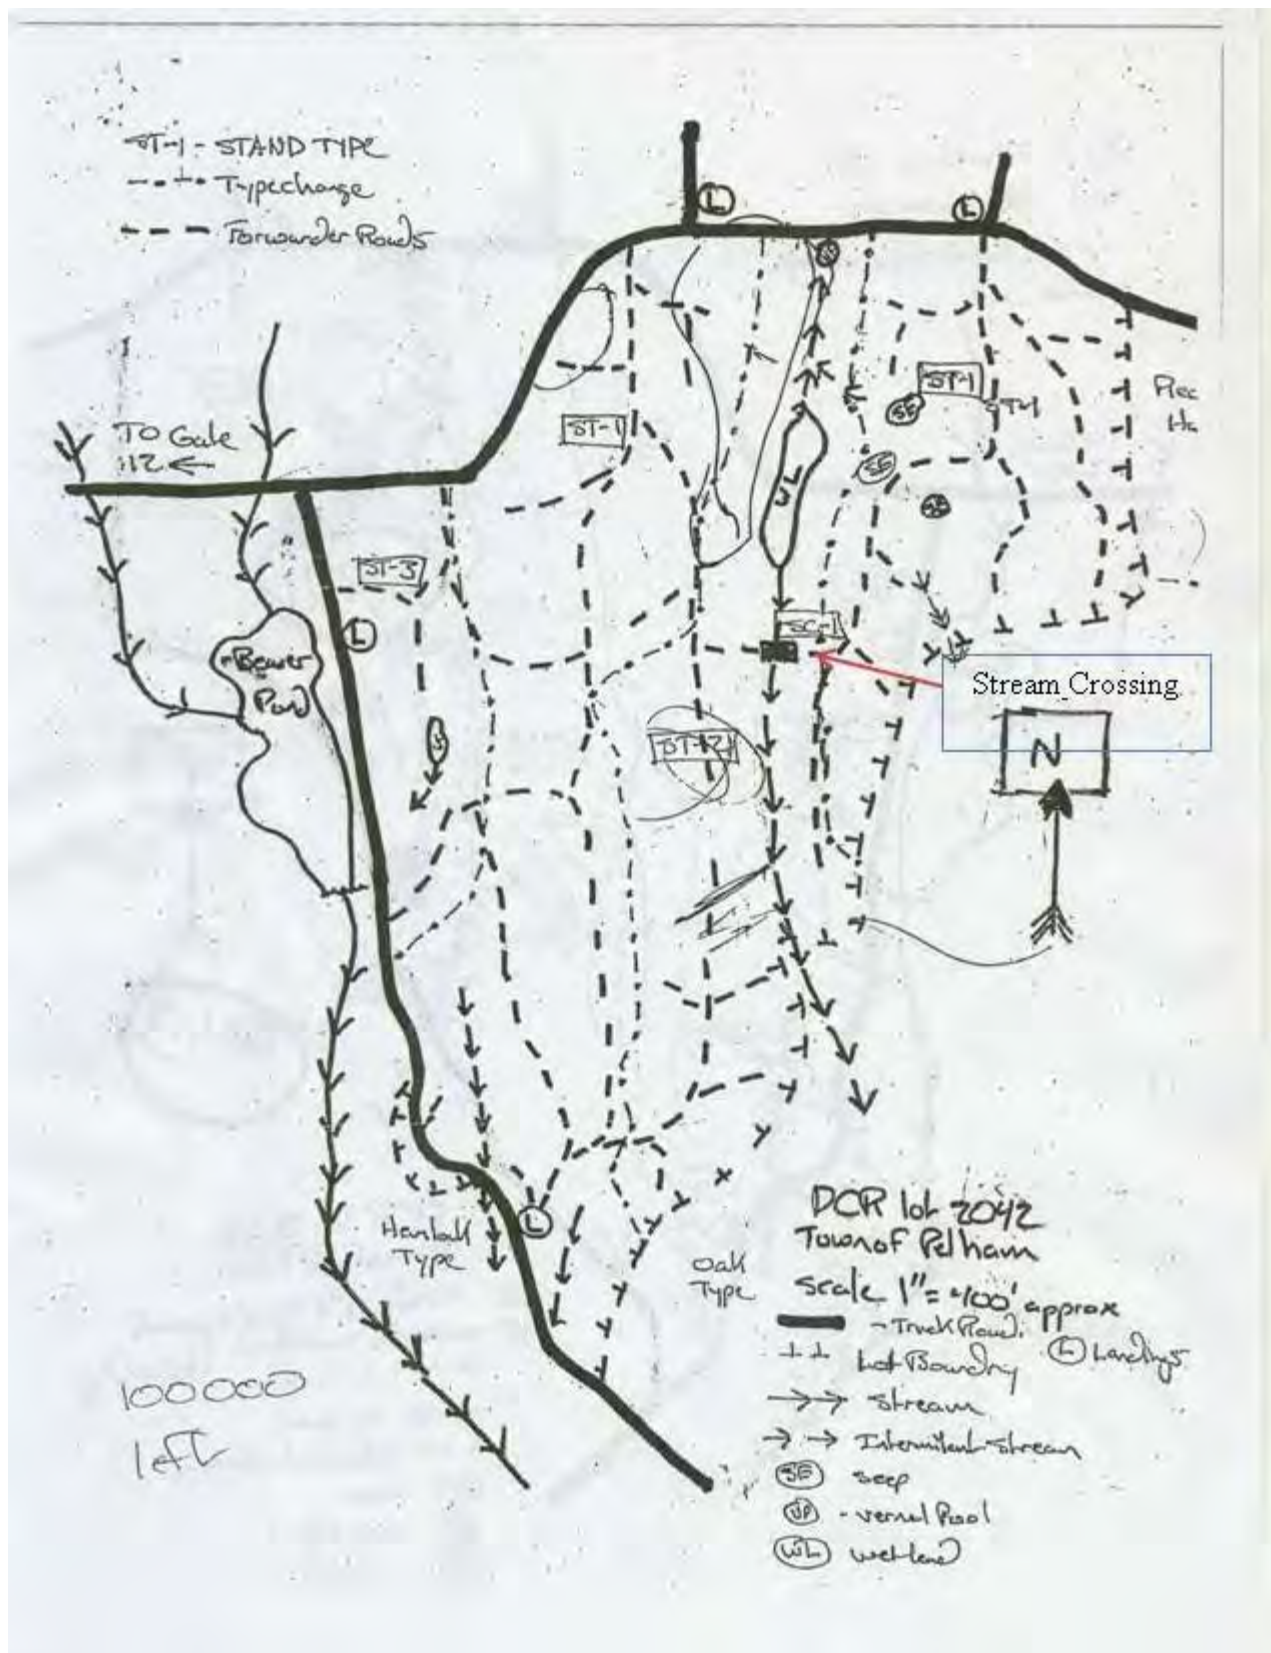 ST-1 - STAND TYPE
Typechange
Forwarder Roads
L
L
ST-1
ST-1
TO Gate
112 ←
SE
SE
WL
ST-3
SC-1
L
Beaver
Pond
Stream Crossing
N
L
Hemlock
Type
Oak
Type
DCR lot 2042
Town of Pelham
scale 1" = 400' approx
- Truck Road
Lot Boundry
L Landings
Stream
Intermitent Stream
SE seep
VP - vernal Pool
WL wetland
100000
left